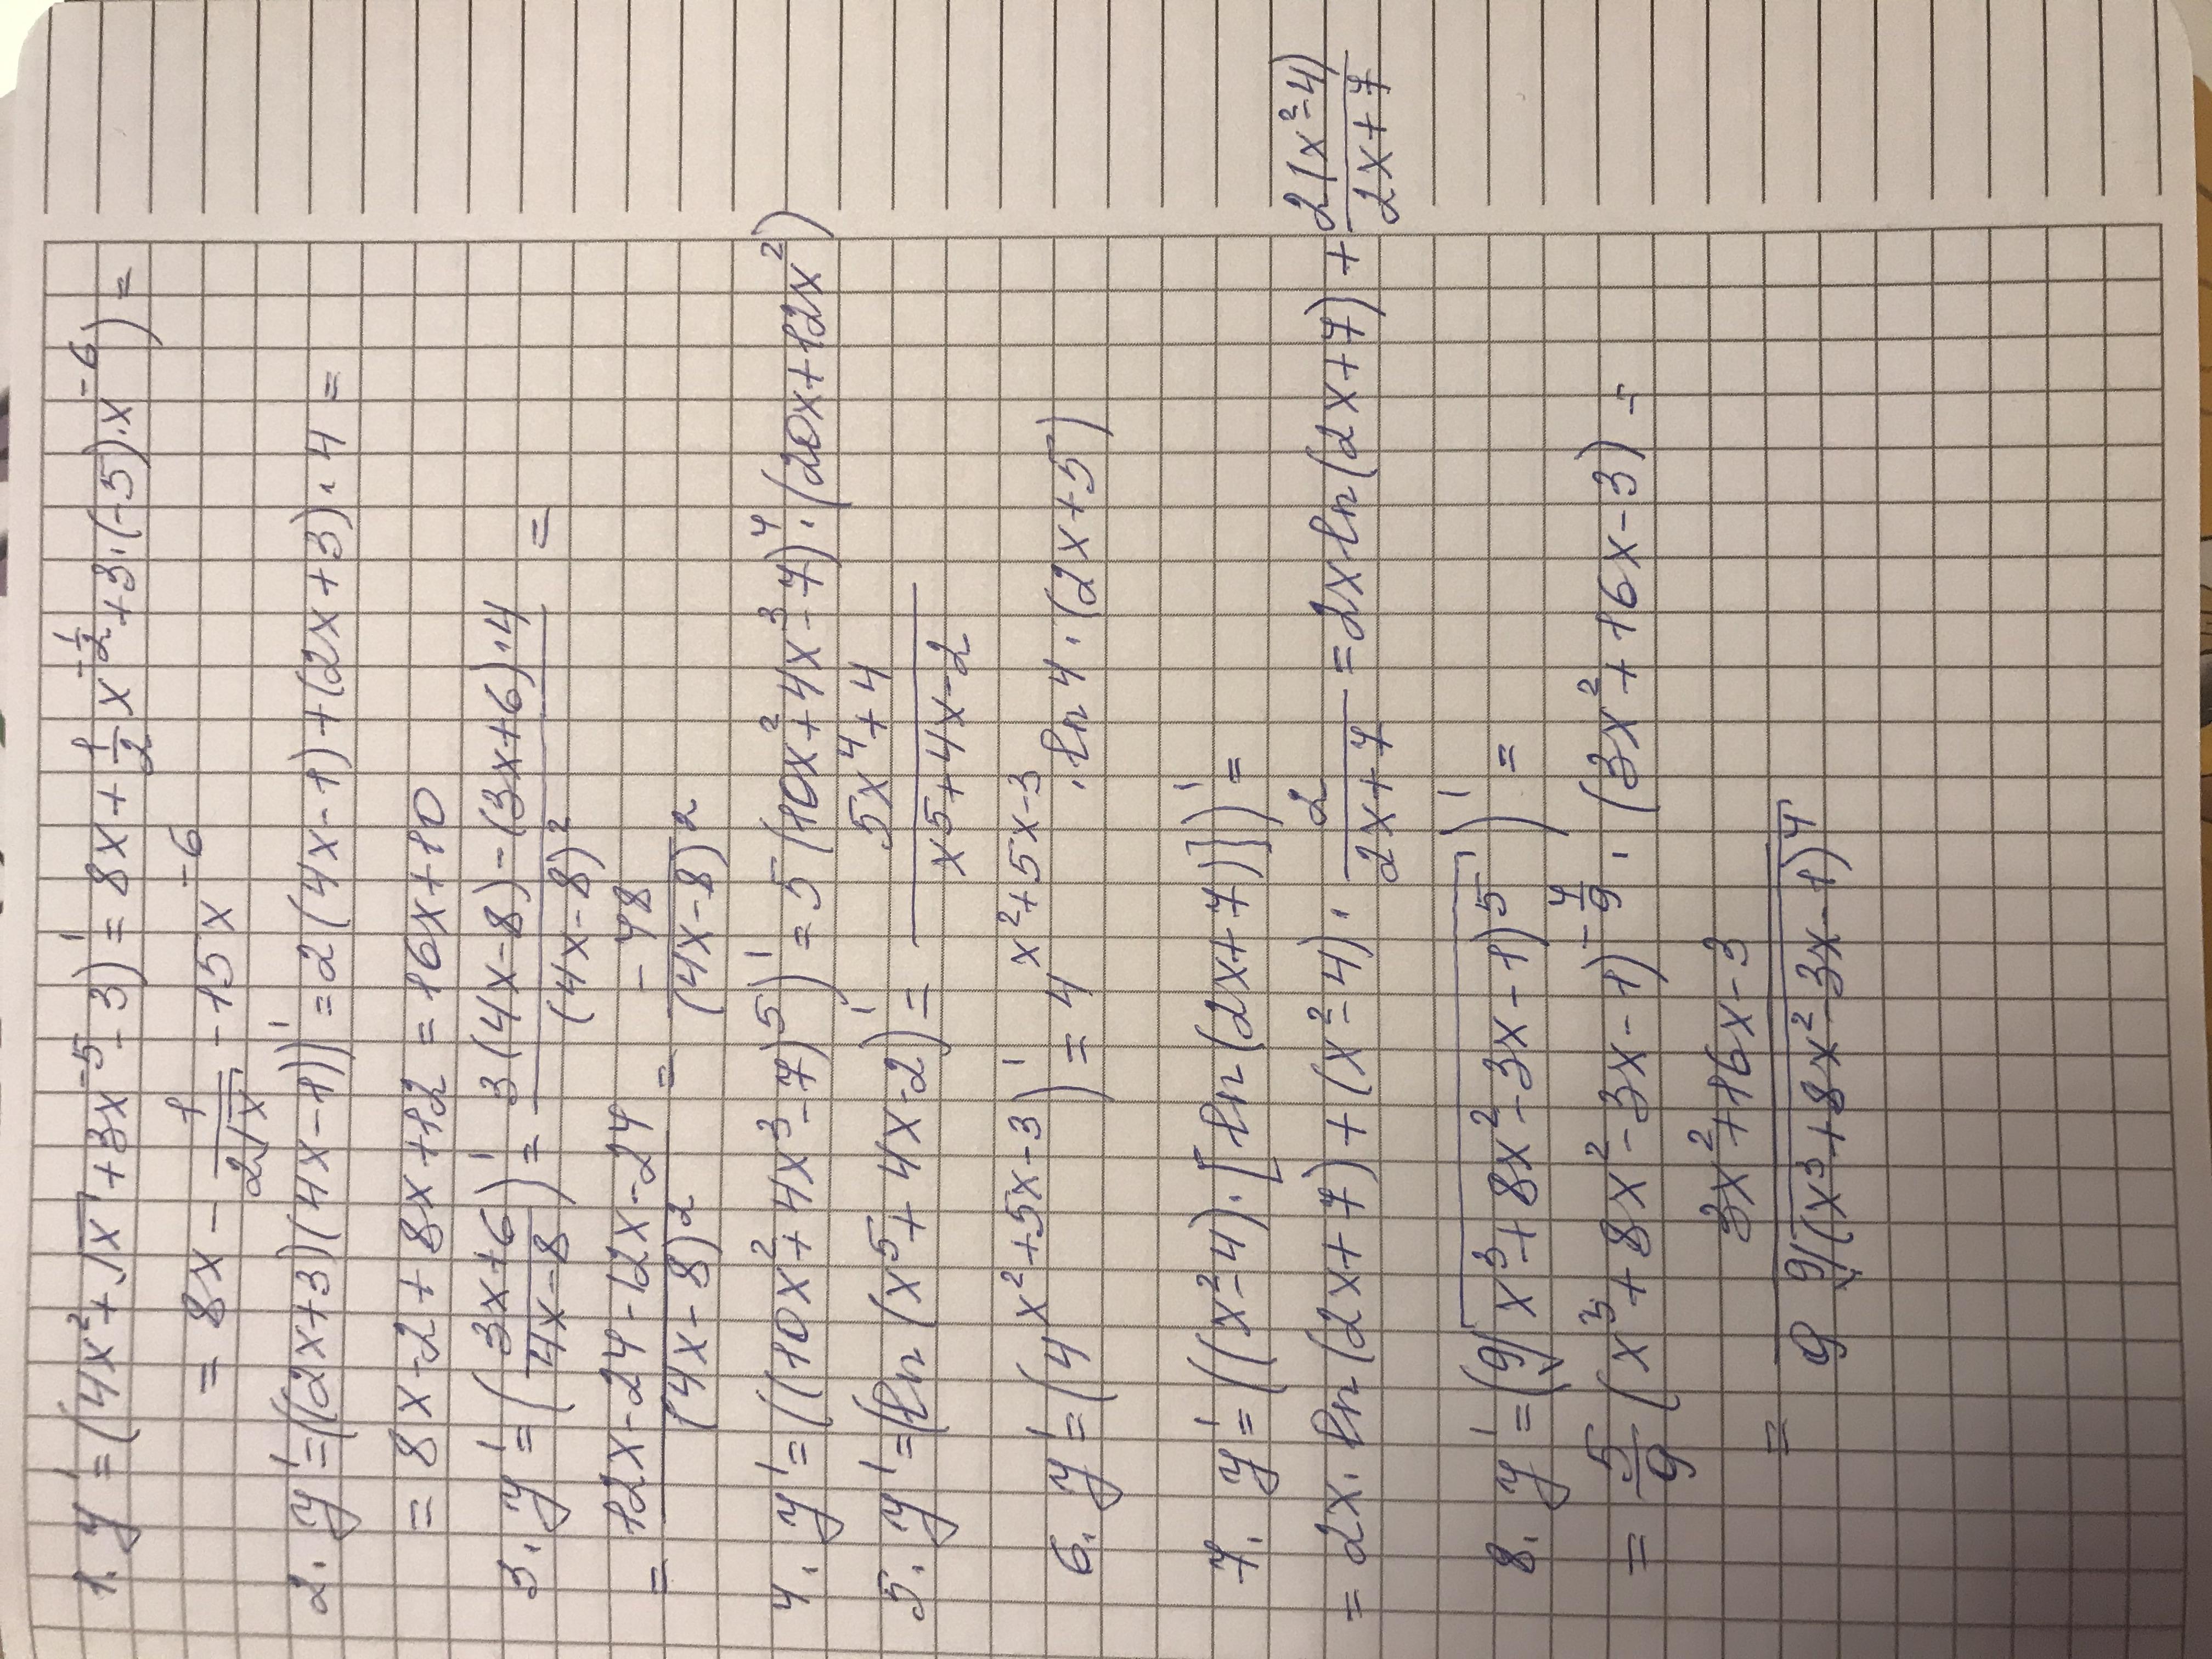 1. y' = (4x² + √x + 3x⁻⁵ - 3)' = 8x + 1/2 x^(-1/2) + 3·(-5)·x⁻⁶) =
= 8x - 1/(2√x) - 15x⁻⁶
2. y' = ((2x+3)(4x-1))' = 2(4x-1) + (2x+3)·4 =
= 8x - 2 + 8x + 12 = 16x + 10
3. y' = ((3x+6)/(4x-8))' = (3(4x-8) - (3x+6)·4)/(4x-8)² =
= (12x - 24 - 12x - 24)/(4x-8)² = -48/(4x-8)²
4. y' = ((10x² + 4x³ - 7)⁵)' = 5(10x² + 4x³ - 7)⁴·(20x + 12x²)
5. y' = (ln(x⁵ + 4x - 2)' = (5x⁴ + 4)/(x⁵ + 4x - 2)
6. y' = (4^(x²+5x-3))' = 4^(x²+5x-3)·ln4·(2x+5)
7. y' = ((x²-4)·[ln(2x+7)])' =
= 2x·ln(2x+7) + (x²-4)·2/(2x+7) = 2x ln(2x+7) + 2(x²-4)/(2x+7)
8. y' = (⁹√(x³ + 8x² - 3x - 1)⁵)' =
= 5/9 (x³ + 8x² - 3x - 1)^(-4/9)·(3x² + 16x - 3) =
= (3x² + 16x - 3)/(9 ⁹√((x³ + 8x² - 3x - 1)⁴))